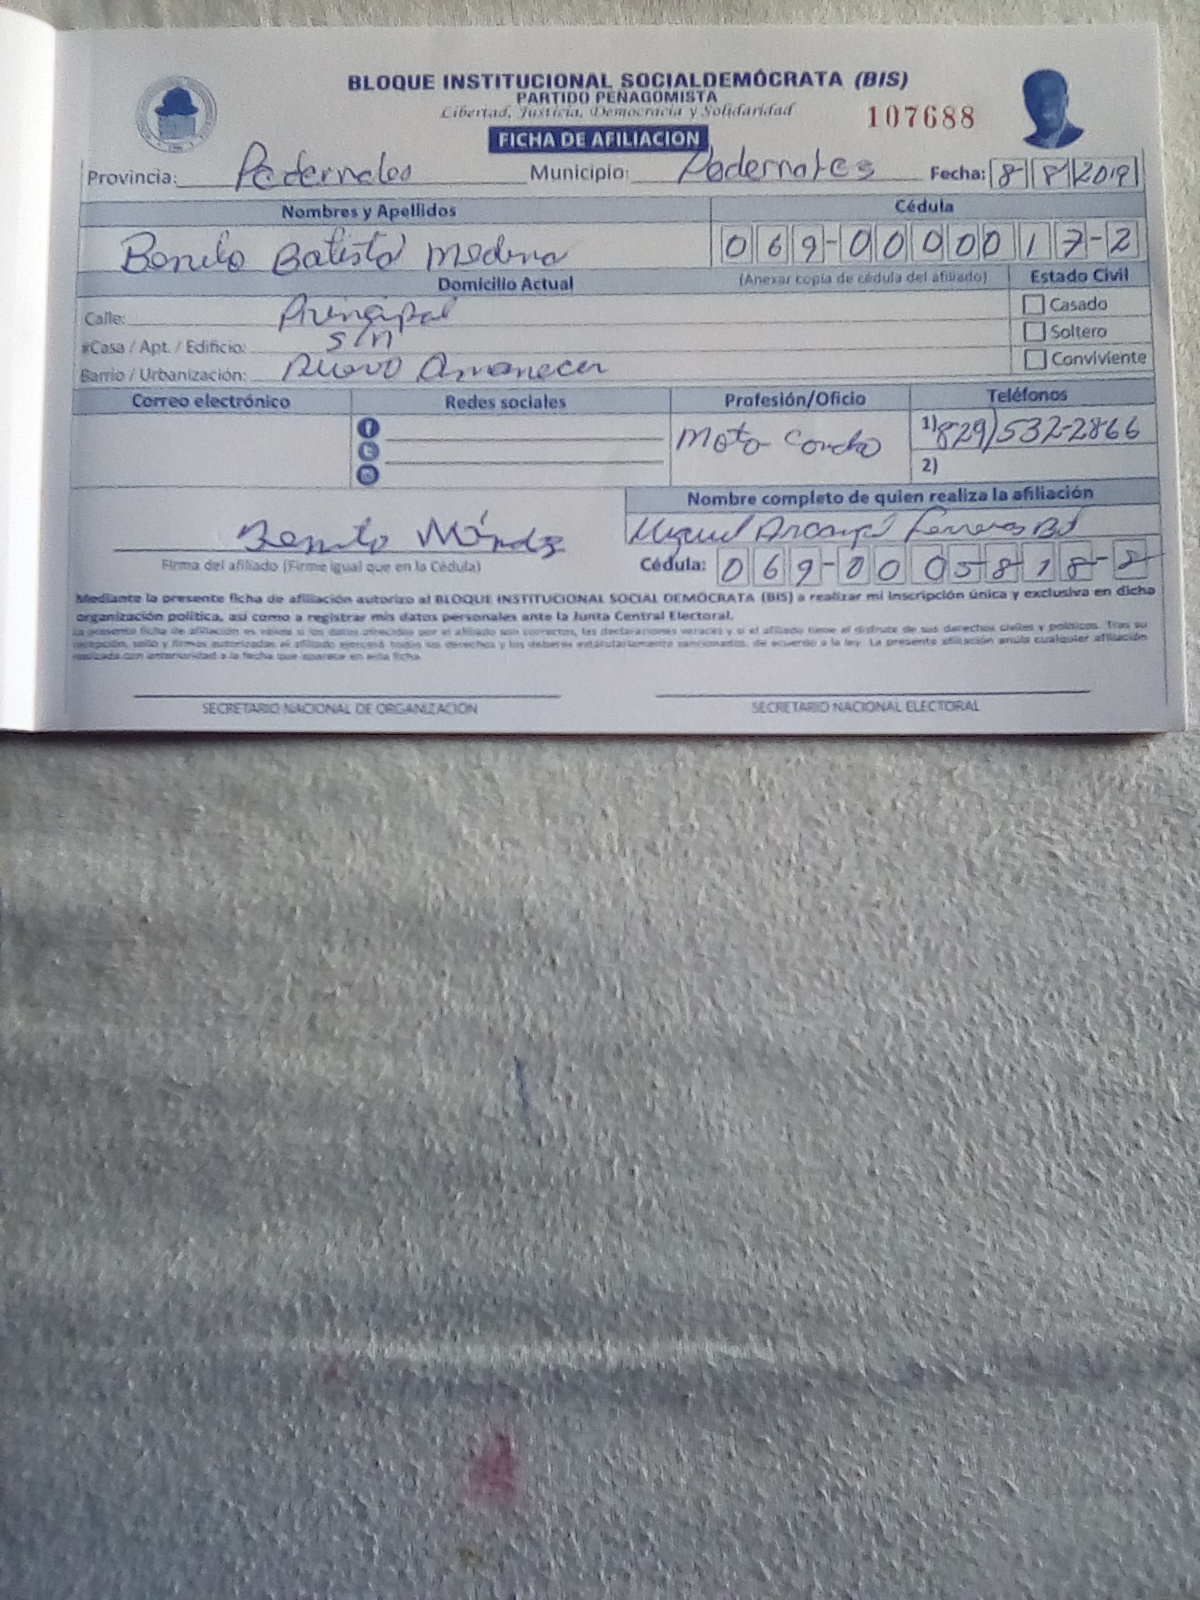 BLOQUE INSTITUCIONAL SOCIALDEMÓCRATA (BIS)
PARTIDO PEÑAGOMISTA
Libertad, Justicia, Democracia y Solidaridad
107688
FICHA DE AFILIACION
Provincia: Pedernales Municipio: Pedernales Fecha: 8 8 2019
Nombres y Apellidos Cédula
Benito Batista Medina 069-0000017-2
Domicilio Actual (Anexar copia de cédula del afiliado) Estado Civil
Calle: Principal Casado
#Casa / Apt. / Edificio: S/n Soltero
Barrio / Urbanización: Nuevo Amanecer Conviviente
Correo electrónico Redes sociales Profesión/Oficio Teléfonos
Moto Concho 1) (829)532-2866
2)
Nombre completo de quien realiza la afiliación
Benito Miguel Arcangel Ferreras
Firma del afiliado (Firme igual que en la Cédula) Cédula: 069-0005818-2
Mediante la presente ficha de afiliación autorizo al BLOQUE INSTITUCIONAL SOCIAL DEMÓCRATA (BIS) a realizar mi inscripción única y exclusiva en dicha
organización política, así como a registrar mis datos personales ante la Junta Central Electoral.
La presente ficha de afiliación es válida si los datos ofrecidos por el afiliado son correctos, las declaraciones veraces y si el afiliado tiene el disfrute de sus derechos civiles y políticos. Tras su
recepción, sello y firmas autorizadas el afiliado ejercerá todos los derechos y los deberes estatutariamente sancionados, de acuerdo a la ley. La presente afiliación anula cualquier afiliación
realizada con anterioridad a la fecha que aparece en esta ficha.
SECRETARIO NACIONAL DE ORGANIZACIÓN SECRETARIO NACIONAL ELECTORAL